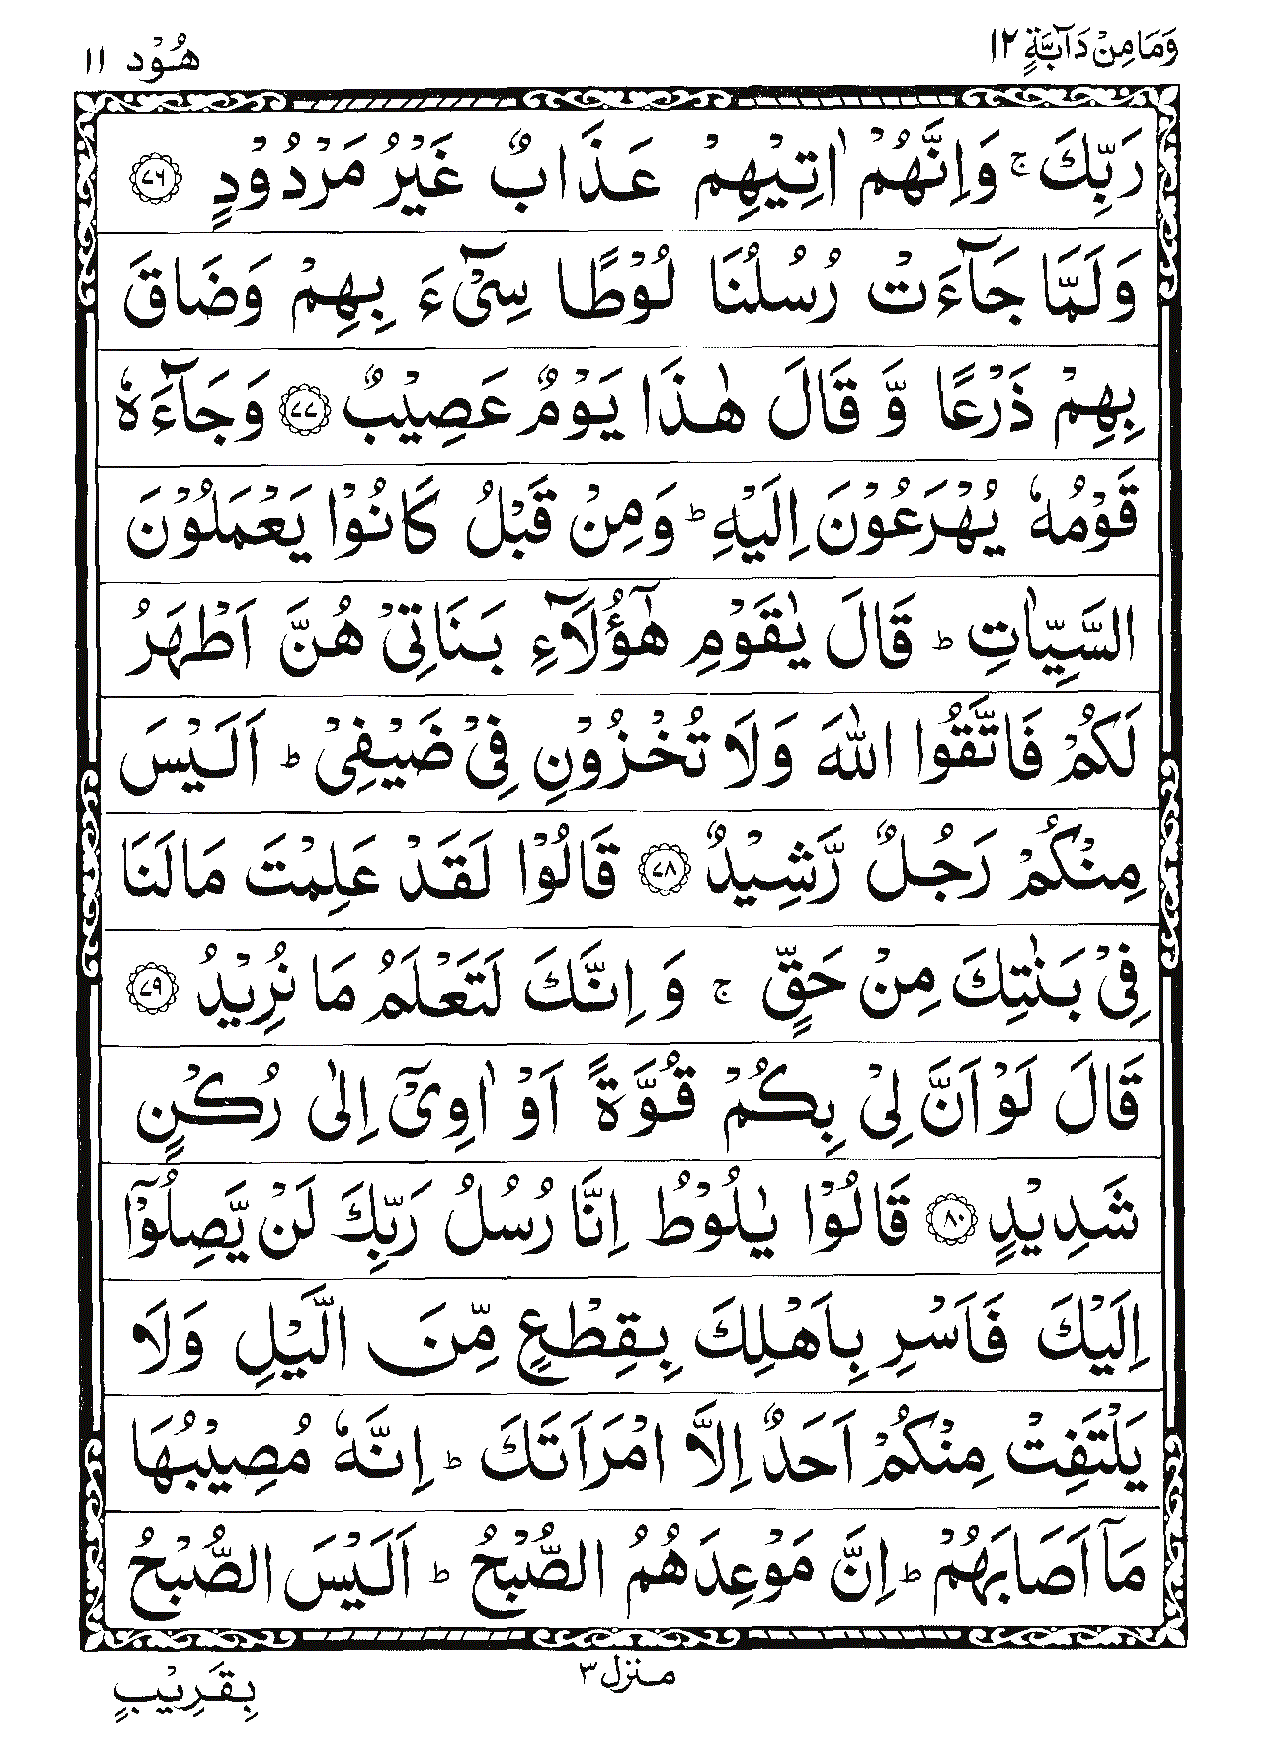 وَمَا مِنْ دَآبَّةٍ ١٢
هُوْد ١١
رَبِّكَ ۚ وَاِنَّهُمْ اٰتِيْهِمْ عَذَابٌ غَيْرُ مَرْدُوْدٍ ﴿٧٦﴾
وَلَمَّا جَآءَتْ رُسُلُنَا لُوْطًا سِيْٓءَ بِهِمْ وَضَاقَ
بِهِمْ ذَرْعًا وَّ قَالَ هٰذَا يَوْمٌ عَصِيْبٌ ﴿٧٧﴾ وَجَآءَهٗ
قَوْمُهٗ يُهْرَعُوْنَ اِلَيْهِ ؕ وَمِنْ قَبْلُ كَانُوْا يَعْمَلُوْنَ
السَّيِّاٰتِ ؕ قَالَ يٰقَوْمِ هٰٓؤُلَآءِ بَنَاتِيْ هُنَّ اَطْهَرُ
لَكُمْ فَاتَّقُوا اللّٰهَ وَلَا تُخْزُوْنِ فِيْ ضَيْفِيْ ؕ اَلَيْسَ
مِنْكُمْ رَجُلٌ رَّشِيْدٌ ﴿٧٨﴾ قَالُوْا لَقَدْ عَلِمْتَ مَا لَنَا
فِيْ بَنٰتِكَ مِنْ حَقٍّ ۚ وَ اِنَّكَ لَتَعْلَمُ مَا نُرِيْدُ ﴿٧٩﴾
قَالَ لَوْ اَنَّ لِيْ بِكُمْ قُوَّةً اَوْ اٰوِيْٓ اِلٰى رُكْنٍ
شَدِيْدٍ ﴿٨٠﴾ قَالُوْا يٰلُوْطُ اِنَّا رُسُلُ رَبِّكَ لَنْ يَّصِلُوْٓا
اِلَيْكَ فَاَسْرِ بِاَهْلِكَ بِقِطْعٍ مِّنَ الَّيْلِ وَلَا
يَلْتَفِتْ مِنْكُمْ اَحَدٌ اِلَّا امْرَاَتَكَ ؕ اِنَّهٗ مُصِيْبُهَا
مَآ اَصَابَهُمْ ؕ اِنَّ مَوْعِدَهُمُ الصُّبْحُ ؕ اَلَيْسَ الصُّبْحُ
منزل ٣
بِقَرِيْبٍ